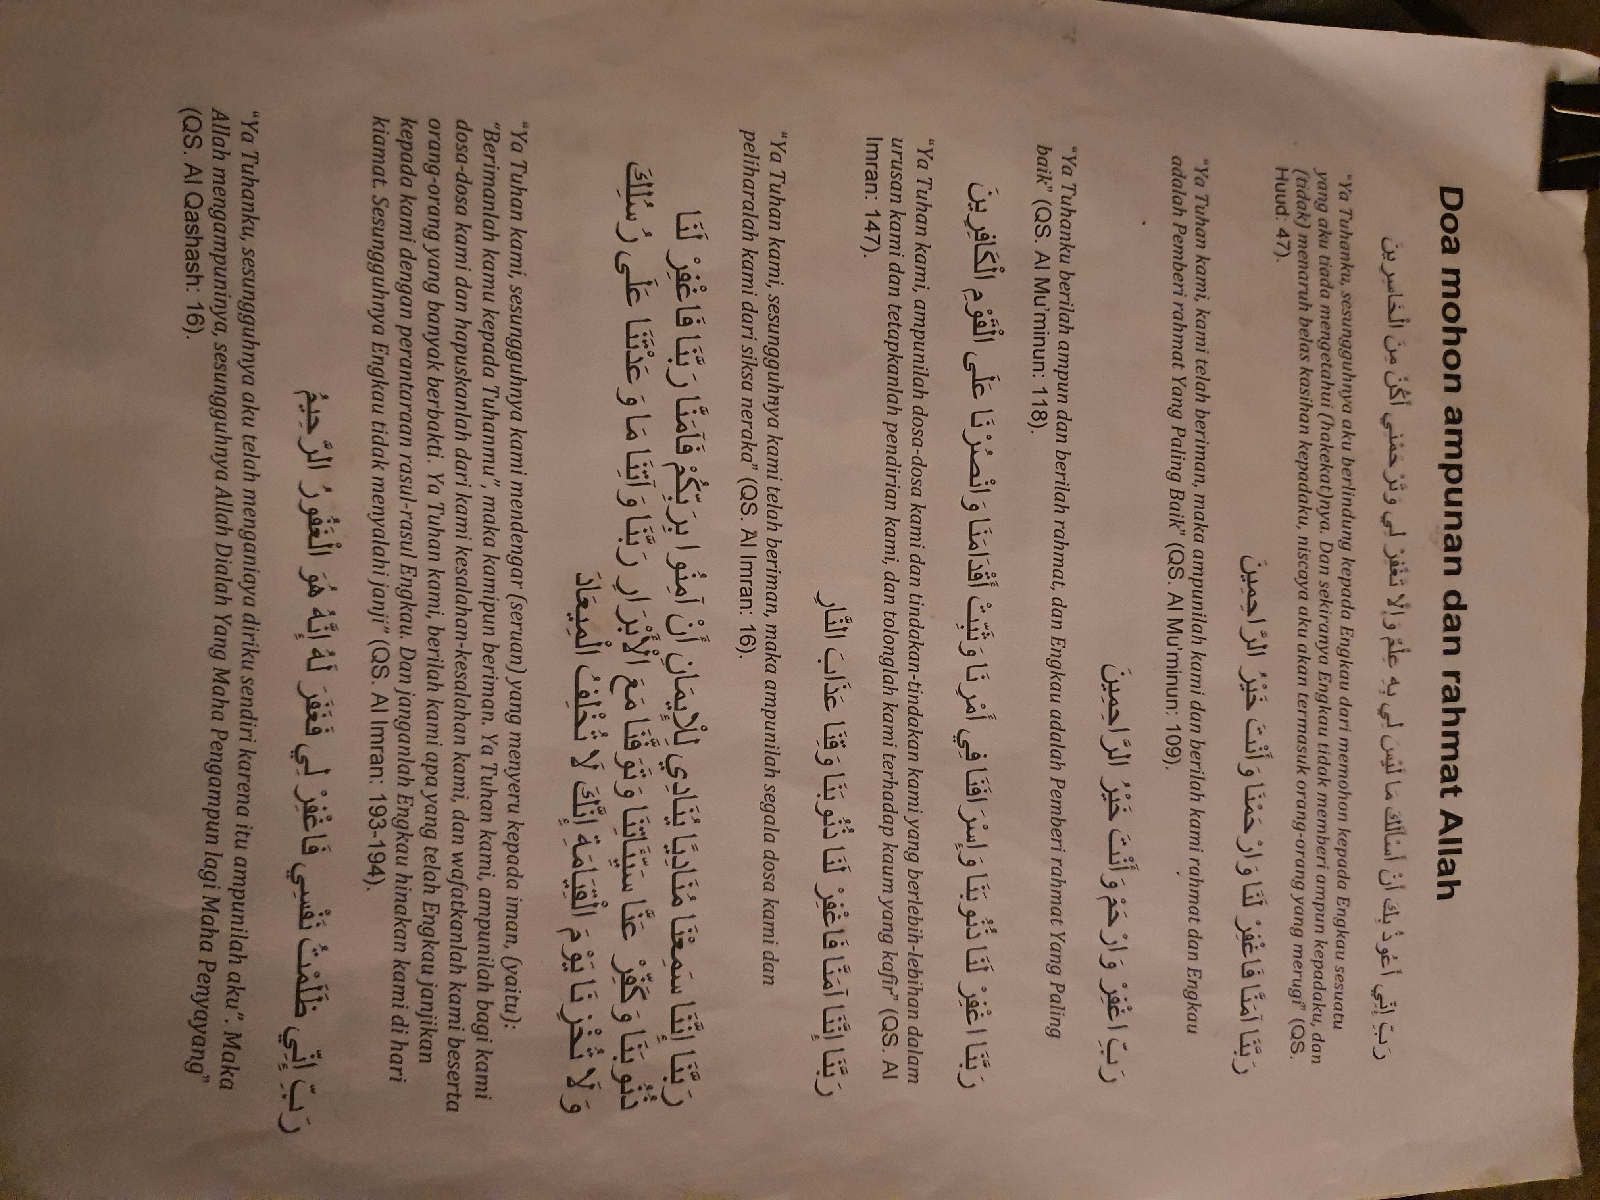 Doa mohon ampunan dan rahmat Allah
رَبِّ إِنِّي أَعُوذُ بِكَ أَنْ أَسْأَلَكَ مَا لَيْسَ لِي بِهِ عِلْمٌ وَإِلَّا تَغْفِرْ لِي وَتَرْحَمْنِي أَكُنْ مِنَ الْخَاسِرِينَ
“Ya Tuhanku, sesungguhnya aku berlindung kepada Engkau dari memohon kepada Engkau sesuatu
yang aku tiada mengetahui (hakekat)nya. Dan sekiranya Engkau tidak memberi ampun kepadaku, dan
(tidak) menaruh belas kasihan kepadaku, niscaya aku akan termasuk orang-orang yang merugi” (QS.
Huud: 47).
رَبَّنَا آمَنَّا فَاغْفِرْ لَنَا وَارْحَمْنَا وَأَنْتَ خَيْرُ الرَّاحِمِينَ
“Ya Tuhan kami, kami telah beriman, maka ampunilah kami dan berilah kami rahmat dan Engkau
adalah Pemberi rahmat Yang Paling Baik” (QS. Al Mu’minun: 109).
رَبِّ اغْفِرْ وَارْحَمْ وَأَنْتَ خَيْرُ الرَّاحِمِينَ
“Ya Tuhanku berilah ampun dan berilah rahmat, dan Engkau adalah Pemberi rahmat Yang Paling
baik” (QS. Al Mu’minun: 118).
رَبَّنَا اغْفِرْ لَنَا ذُنُوبَنَا وَإِسْرَافَنَا فِي أَمْرِنَا وَثَبِّتْ أَقْدَامَنَا وَانْصُرْنَا عَلَى الْقَوْمِ الْكَافِرِينَ
“Ya Tuhan kami, ampunilah dosa-dosa kami dan tindakan-tindakan kami yang berlebih-lebihan dalam
urusan kami dan tetapkanlah pendirian kami, dan tolonglah kami terhadap kaum yang kafir” (QS. Al
Imran: 147).
رَبَّنَا إِنَّنَا آمَنَّا فَاغْفِرْ لَنَا ذُنُوبَنَا وَقِنَا عَذَابَ النَّارِ
“Ya Tuhan kami, sesungguhnya kami telah beriman, maka ampunilah segala dosa kami dan
peliharalah kami dari siksa neraka” (QS. Al Imran: 16).
رَبَّنَا إِنَّنَا سَمِعْنَا مُنَادِيًا يُنَادِي لِلْإِيمَانِ أَنْ آمِنُوا بِرَبِّكُمْ فَآمَنَّا رَبَّنَا فَاغْفِرْ لَنَا
ذُنُوبَنَا وَكَفِّرْ عَنَّا سَيِّئَاتِنَا وَتَوَفَّنَا مَعَ الْأَبْرَارِ رَبَّنَا وَآتِنَا مَا وَعَدْتَنَا عَلَى رُسُلِكَ
وَلَا تُخْزِنَا يَوْمَ الْقِيَامَةِ إِنَّكَ لَا تُخْلِفُ الْمِيعَادَ
“Ya Tuhan kami, sesungguhnya kami mendengar (seruan) yang menyeru kepada iman, (yaitu):
“Berimanlah kamu kepada Tuhanmu”, maka kamipun beriman. Ya Tuhan kami, ampunilah bagi kami
dosa-dosa kami dan hapuskanlah dari kami kesalahan-kesalahan kami, dan wafatkanlah kami beserta
orang-orang yang banyak berbakti. Ya Tuhan kami, berilah kami apa yang telah Engkau janjikan
kepada kami dengan perantaraan rasul-rasul Engkau. Dan janganlah Engkau hinakan kami di hari
kiamat. Sesungguhnya Engkau tidak menyalahi janji” (QS. Al Imran: 193-194).
رَبِّ إِنِّي ظَلَمْتُ نَفْسِي فَاغْفِرْ لِي فَغَفَرَ لَهُ إِنَّهُ هُوَ الْغَفُورُ الرَّحِيمُ
“Ya Tuhanku, sesungguhnya aku telah menganiaya diriku sendiri karena itu ampunilah aku”. Maka
Allah mengampuninya, sesungguhnya Allah Dialah Yang Maha Pengampun lagi Maha Penyayang”
(QS. Al Qashash: 16).